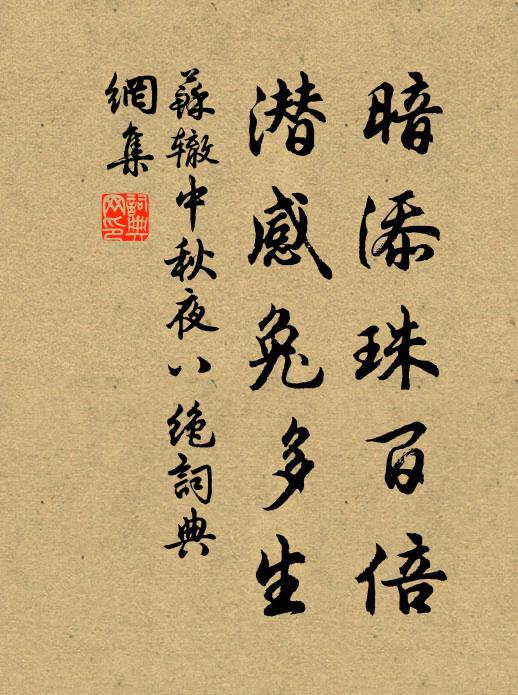 暗添珠百倍
潜感兔多生
蘇轍中秋夜八绝詞典
網集
詞典網印